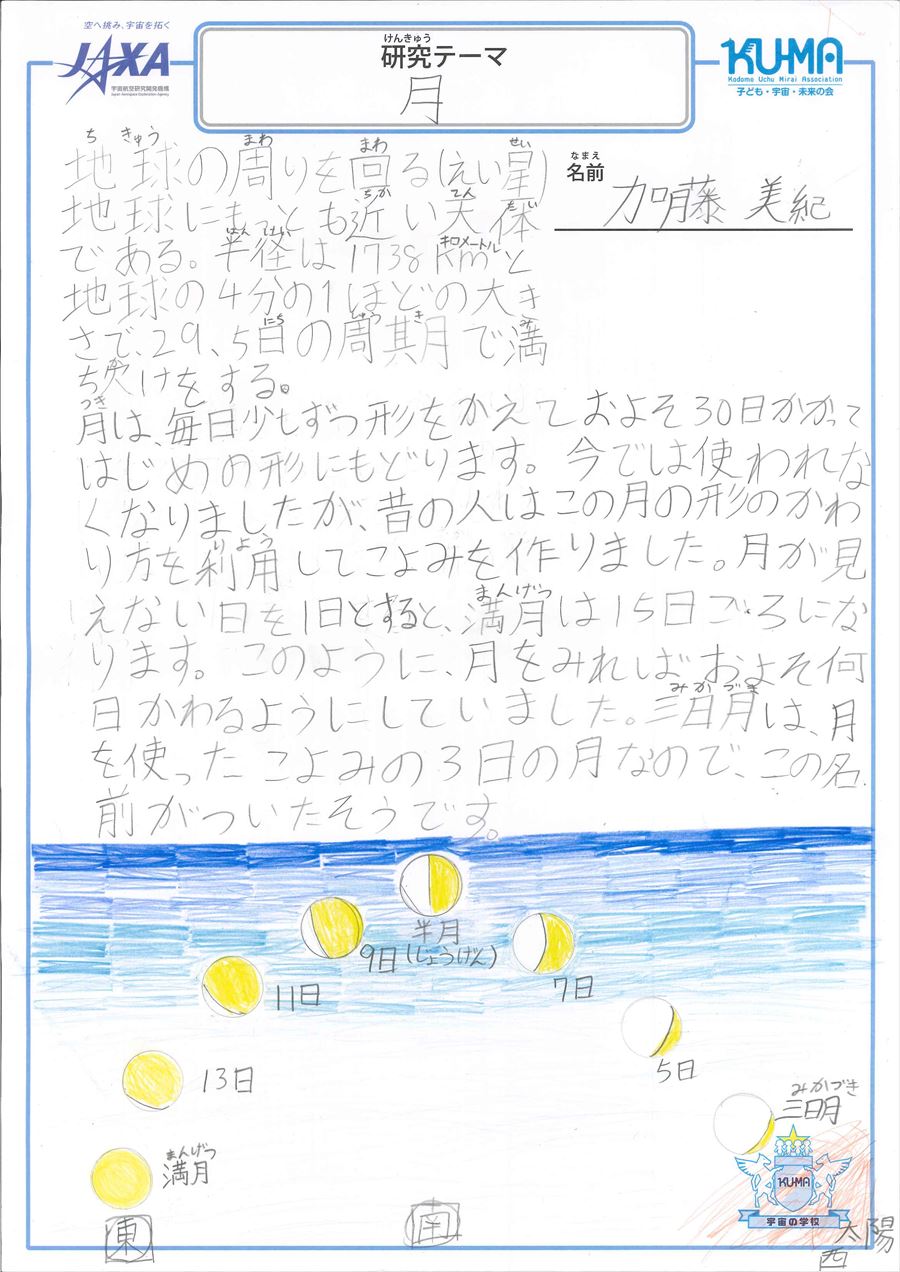 空へ挑み、宇宙を拓く
JAXA
宇宙航空研究開発機構
Japan Aerospace Exploration Agency
けんきゅう
研究テーマ
月
KU-MA
Kodomo Uchu Mirai Association
子ども・宇宙・未来の会
なまえ
名前
加藤 美紀
ち きゅう まわ まわ せい
地球の周りを回る(えい星)
ちか てん たい
地球にもっとも近い天体
はん けい キロメートル
である。半径は1738kmと
地球の4分の1ほどの大き
にち しゅう き み
さで、29、5日の周期月で満
か
ち欠けをする。
つき
月は、毎日少しずつ形をかえておよそ30日かかって
はじめの形にもどります。今では使われな
くなりましたが、昔の人はこの月の形のかわ
りよう
り方を利用してこよみを作りました。月が見
まんげつ
えない日を1日とすると、満月は15日ごろにな
ります。このように、月をみればおよそ何
みかづき
日かわるようにしていました。三日月は、月
を使ったこよみの3日の月なので、この名
前がついたそうです。
半月
(じょうげん)
9日
7日
11日
5日
13日
みかづき
三日月
まんげつ
満月
KU-MA
宇宙の学校
東
南
太陽
西